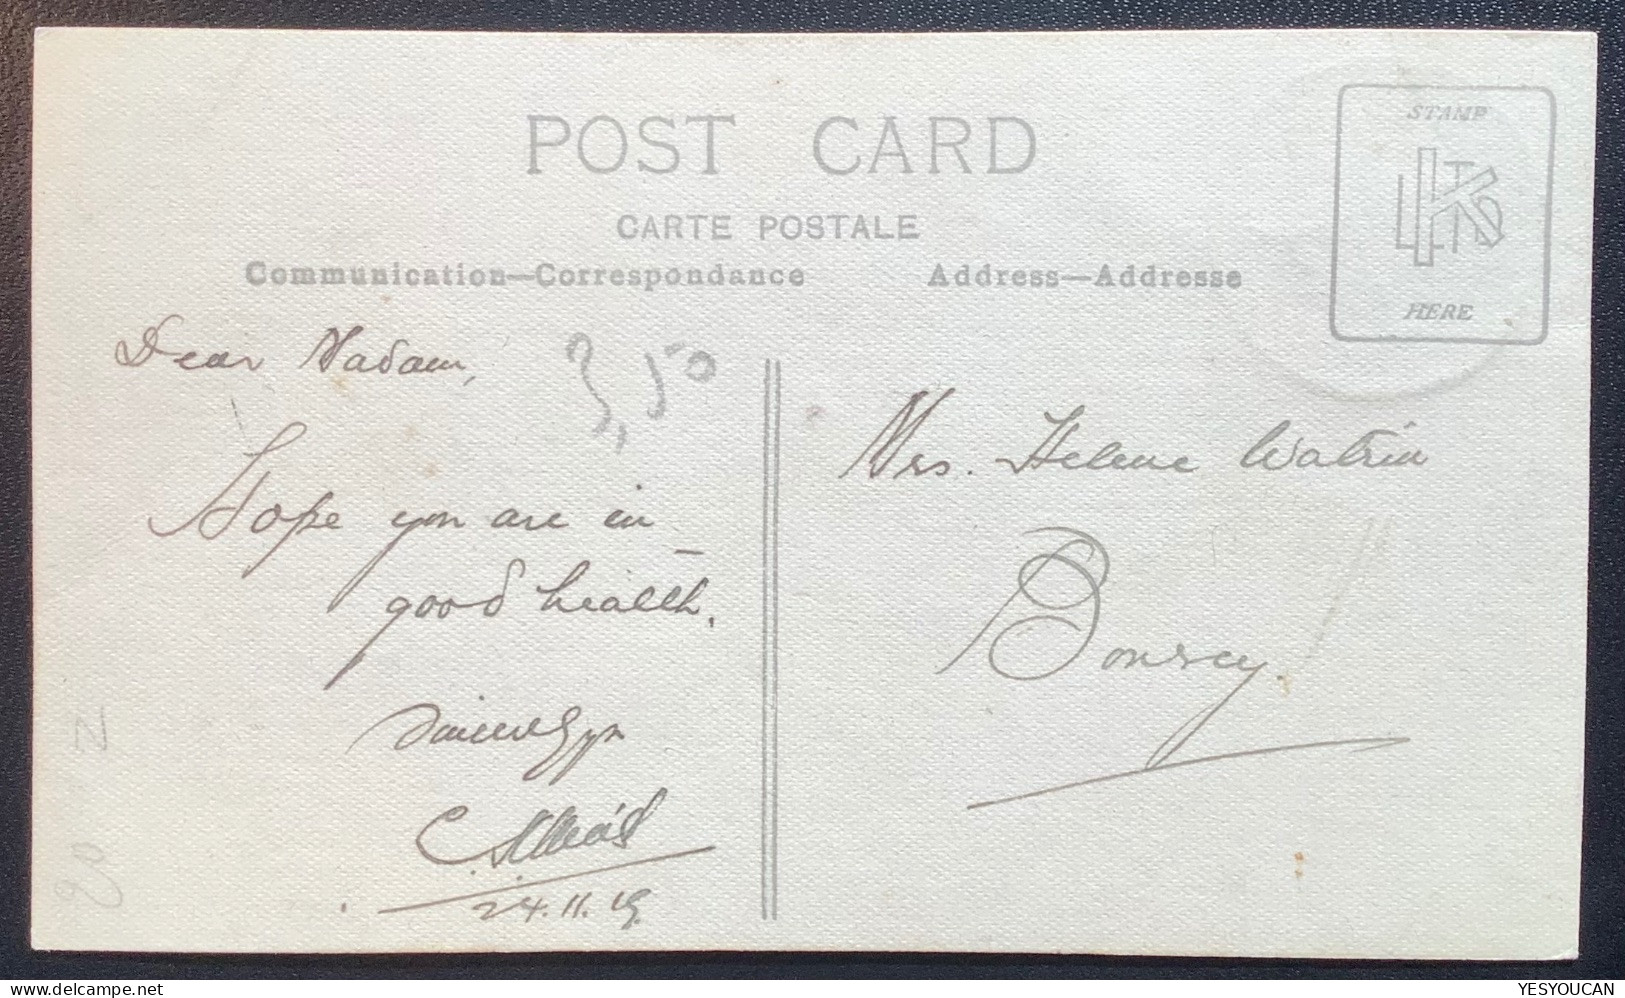 POST CARD
CARTE POSTALE
Communication—Correspondance
Address—Addresse
STAMP
HERE
Dear Madam,
3,50
Hope you are in
good health.
Mrs. Helene Watrin
Bonvey.
24.11.19.
20
Z
YESYOUCAN